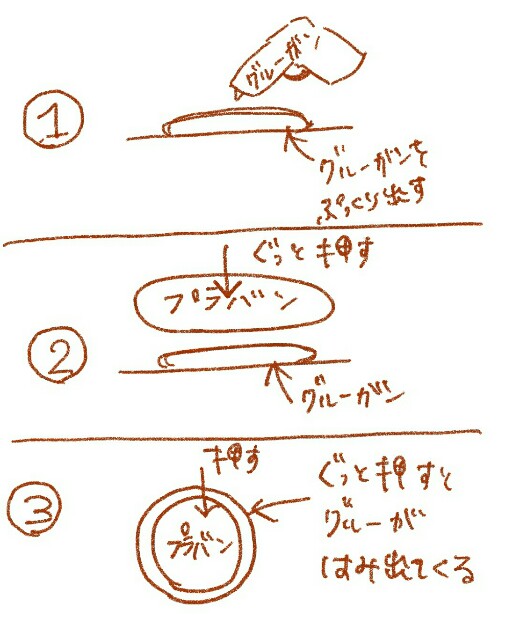 グルーガン
①
グルーガンを
ぷっくり出す
ぐっと押す
プラバン
②
グルーガン
押す
③
ぐっと押すと
グルーが
はみ出てくる
プラバン